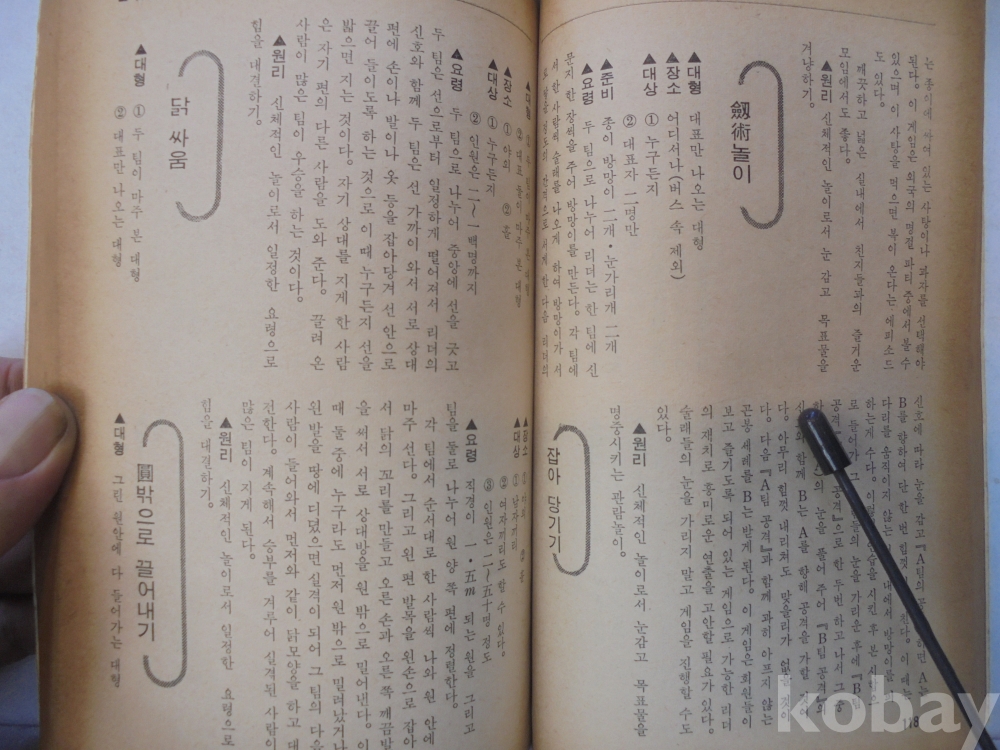 는 종이에 싸여 있는 사탕이나 과자를 선택해야
된다. 이 게임은 외국의 명절 파티 중에서 볼 수
있으며 이 사탕을 먹으면 복이 온다는 에피소드
도 있다.
깨끗하고 넓은 실내에서 친지들과의 즐거운
모임에서도 좋다.
▲원리 신체적인 놀이로서 눈 감고 목표물을
겨냥하기.
劔術놀이
▲대형 대표만 나오는 대형
▲장소 어디서나(버스 속 제외)
▲대상 ① 누구든지
② 대표자 二명만
▲준비 종이 방망이 二개・눈가리개 二개
▲요령 두 팀으로 나누어 리더는 한 팀에 신
문지 한 장씩을 주어 방망이를 만든다. 각 팀에
서 한 사람씩 술래를 나오게 하여 방망이가 서
간격으로 서게 한 다음 리더의
신호에 따라 눈을 감고 『A팀의 공 하면 A는
B를 향하여 단 한 번 힘껏 친다. 이 때
다리를 움직이지 않는 내에서 방망이를
하는게 수다. 이렇 습을 시킨 후 본
로 들어가 그 들의 눈을 가리운 후에 『B팀
공격』『A 공격』으로 한두번 하고 나서
의 눈을 풀어 주어 『B팀 공격의
와 함께 B는 A를 향해 공격을 가할
다. 아무리 힘껏 내리쳐도 맞을리가 없
다. 다음 『A팀 공격』과 함께 과히 아프지 않는
곤봉 세례를 B는 받게 된다. 이 게임은 회원들이
보고 즐기도록 되어 있는 게임으로 가능한 리더
의 재치로 흥미로운 연출을 고안할 필요가 있다.
술래들의 눈을 가리지 말고 게임을 진행할 수도
있다.
▲원리 신체적인 놀이로서 눈감고 목표물을
명중시키는 관람놀이.
잡아 당기기
118
▲대형
② 대표 들이 마주 본 대형
▲장소 ① 야외 ②
▲대상 ① 누구든지
② 인원은 二〜一백명까지
▲요령 두 팀으로 나누어 중앙에 선을 긋고
두 팀은 선으로부터 일정하게 떨어져서 리더의
신호와 함께 두 팀은 선 가까이 와서 서로 상대
편에 손이나 발이나 옷 등을 잡아당겨 선 안으로
끌어 들이도록 하는 것으로 이때 누구든지 선을
밟으면 지는 것이다. 자기 상대를 지게 한 사람
은 자기 편의 다른 사람을 도와 준다. 끌려 온
사람이 많은 팀이 우승을 하는 것이다.
▲원리 신체적인 놀이로서 일정한 요령으로
힘을 대결하기.
닭 싸움
▲대형 ① 두 팀이 마주 본 대형
② 대표만 나오는 대형
▲장소
▲대상 ① 남자끼리
② 여자끼리도 할 수 있다.
③ 인원은 二〜五十명 정도
▲요령 직경이 一・五m 되는 원을 그리고
팀을 둘로 나누어 원 양 쪽 편에 정렬한다.
각 팀에서 순서대로 한 사람씩 나와 원 안에
마주 선다. 그리고 왼 편 발목을 왼손으로 잡아
서 닭의 꼬리를 만들고 오른 손과 오른 쪽 깨금발
을 써서 서로 상대방을 원 밖으로 밀어낸다. 이
때 둘 중에 누구라도 먼저 원 밖으로 밀려났거나
왼발을 땅에 디뎠으면 실격이 되어 그 팀의 다음
사람이 들어와서 먼저와 같이 닭모양을 하고 대
전한다. 계속해서 승부를 겨루어 실격된 사람이
많은 팀이 지게 된다.
▲원리 신체적인 놀이로서 일정한 요령으로
힘을 대결하기.
圓밖으로 끌어내기
▲대형 그린 원안에 다 들어가는 대형
kobay